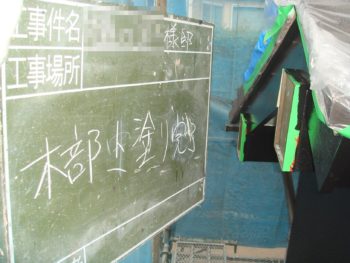 工事件名
様邸
工事場所
木部上塗り